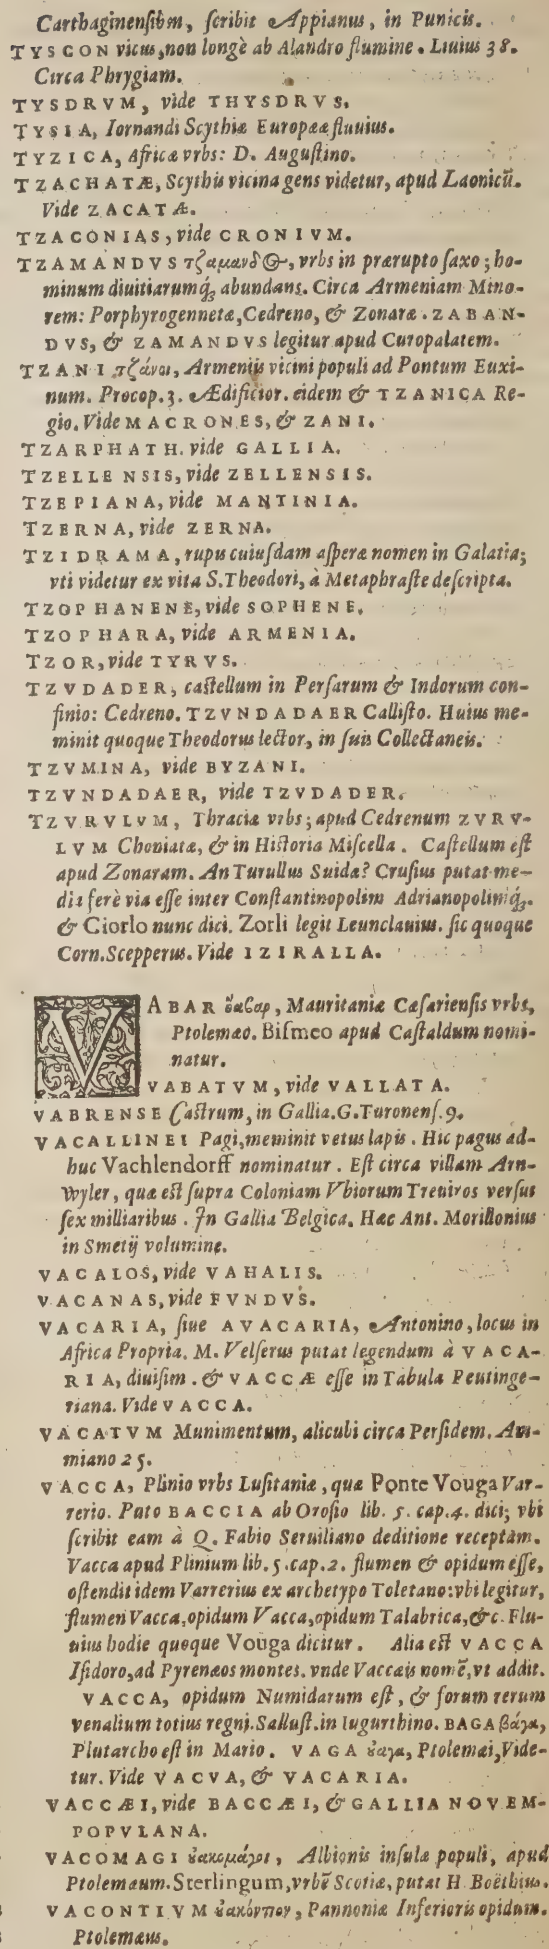 Carthaginensibm, scribit Appianus, in Punicis.
TYSCON vicus, non longè ab Alandro flumine. Liuius 38.
Circa Phrygiam.
TYSDRVM, vide THYSDRVS.
TYSIA, Iornandi Scythiæ Europææ fluuius.
TYZICA, Africæ vrbs: D. Augustino.
TZACHATÆ, Scythis vicina gens videtur, apud Laonicū.
Vide ZACATÆ.
TZACONIAS, vide CRONIVM.
TZAMANDVS τζαμανδ@, vrbs in prærupto saxo; ho-
minum diuitiarumq́; abundans. Circa Armeniam Mino-
rem: Porphyrogennetæ, Cedreno, & Zonaræ. ZABAN-
DVS, & ZAMANDVS legitur apud Curopalatem.
TZANI τζάνοι, Armeniis vicini populi ad Pontum Euxi-
num. Procop. 3. Ædificior. eidem & TZANICA Re-
gio. Vide MACRONES, & ZANI.
TZARPHATH. vide GALLIA.
TZELLENSIS, vide ZELLENSIS.
TZEPIANA, vide MANTINIA.
TZERNA, vide ZERNA.
TZIDRAMA, rupis cuiusdam asperæ nomen in Galatia;
vti videtur ex vita S. Theodori, à Metaphraste descripta.
TZOPHANENE, vide SOPHENE.
TZOPHARA, vide ARMENIA.
TZOR, vide TYRVS.
TZVDADER, castellum in Persarum & Indorum con-
finio: Cedreno. TZVNDADAER Callisto. Huius me-
minit quoque Theodorus lector, in suis Collectaneis.
TZVMINA, vide BYZANI.
TZVNDADAER, vide TZVDADER.
TZVRVLVM, Thraciæ vrbs; apud Cedrenum ZVRV-
LVM Choniatæ, & in Historia Miscella. Castellum est
apud Zonaram. An Turullus Suidæ? Crusius putat me-
diâ ferè via esse inter Constantinopolim Adrianopolimq́;.
& Ciorlo nunc dici. Zorli legit Leunclauius. sic quoque
Corn. Scepperus. Vide IZIRALLA.
VABAR ȣαβαρ, Mauritaniæ Cæsariensis vrbs,
Ptolemæo. Bismeo apud Castaldum nomi-
natur.
VABATVM, vide VALLATA.
VABRENSE Castrum, in Gallia. G. Turonens. 9.
VACALLINEI Pagi, meminit vetus lapis. Hic pagus ad-
huc Vachlendorff nominatur. Est circa villam Arn-
Wyler, quæ est supra Coloniam Vbiorum Treuiros versus
sex milliaribus. In Gallia Belgica. Hæc Ant. Morillonius
in Smetij volumine.
VACALOS, vide VAHALIS.
VACANAS, vide FVNDVS.
VACARIA, siue AVACARIA, Antonino, locus in
Africa Propria. M. Velserus putat legendum à VACA-
RIA, diuisim. & VACCÆ esse in Tabula Peutinge-
riana. Vide VACCA.
VACATVM Munimentum, alicubi circa Persidem. Am-
miano 25.
VACCA, Plinio vrbs Lusitaniæ, quæ Ponte Vouga Var-
rerio. Puto BACCIA ab Orosio lib. 5. cap. 4. dici; vbi
scribit eam à Q. Fabio Seruiliano deditione receptam.
Vacca apud Plinium lib. 5. cap. 2. flumen & opidum esse,
ostendit idem Varrerius ex archetypo Toletano: vbi legitur,
flumen Vacca, opidum Vacca, opidum Talabrica, &c. Flu-
uius hodie quoque Vouga dicitur. Alia est VACCA
Isidoro, ad Pyrenæos montes. vnde Vaccæis nomē, vt addit.
VACCA, opidum Numidarum est, & forum rerum
venalium totius regni. Sallust. in Iugurthino. BAGA βάγα,
Plutarcho est in Mario. VAGA ȣαγα, Ptolemæi, Vide-
tur. Vide VACVA, & VACARIA.
VACCÆI, vide BACCÆI, & GALLIA NOVEM-
POPVLANA.
VACOMAGI ȣακομάγοι, Albionis insulæ populi, apud
Ptolemæum. Sterlingum, vrbē Scotiæ, putat H. Boëthius.
VACONTIVM ȣακόντιον, Pannoniæ Inferioris opidum.
Ptolemæus.